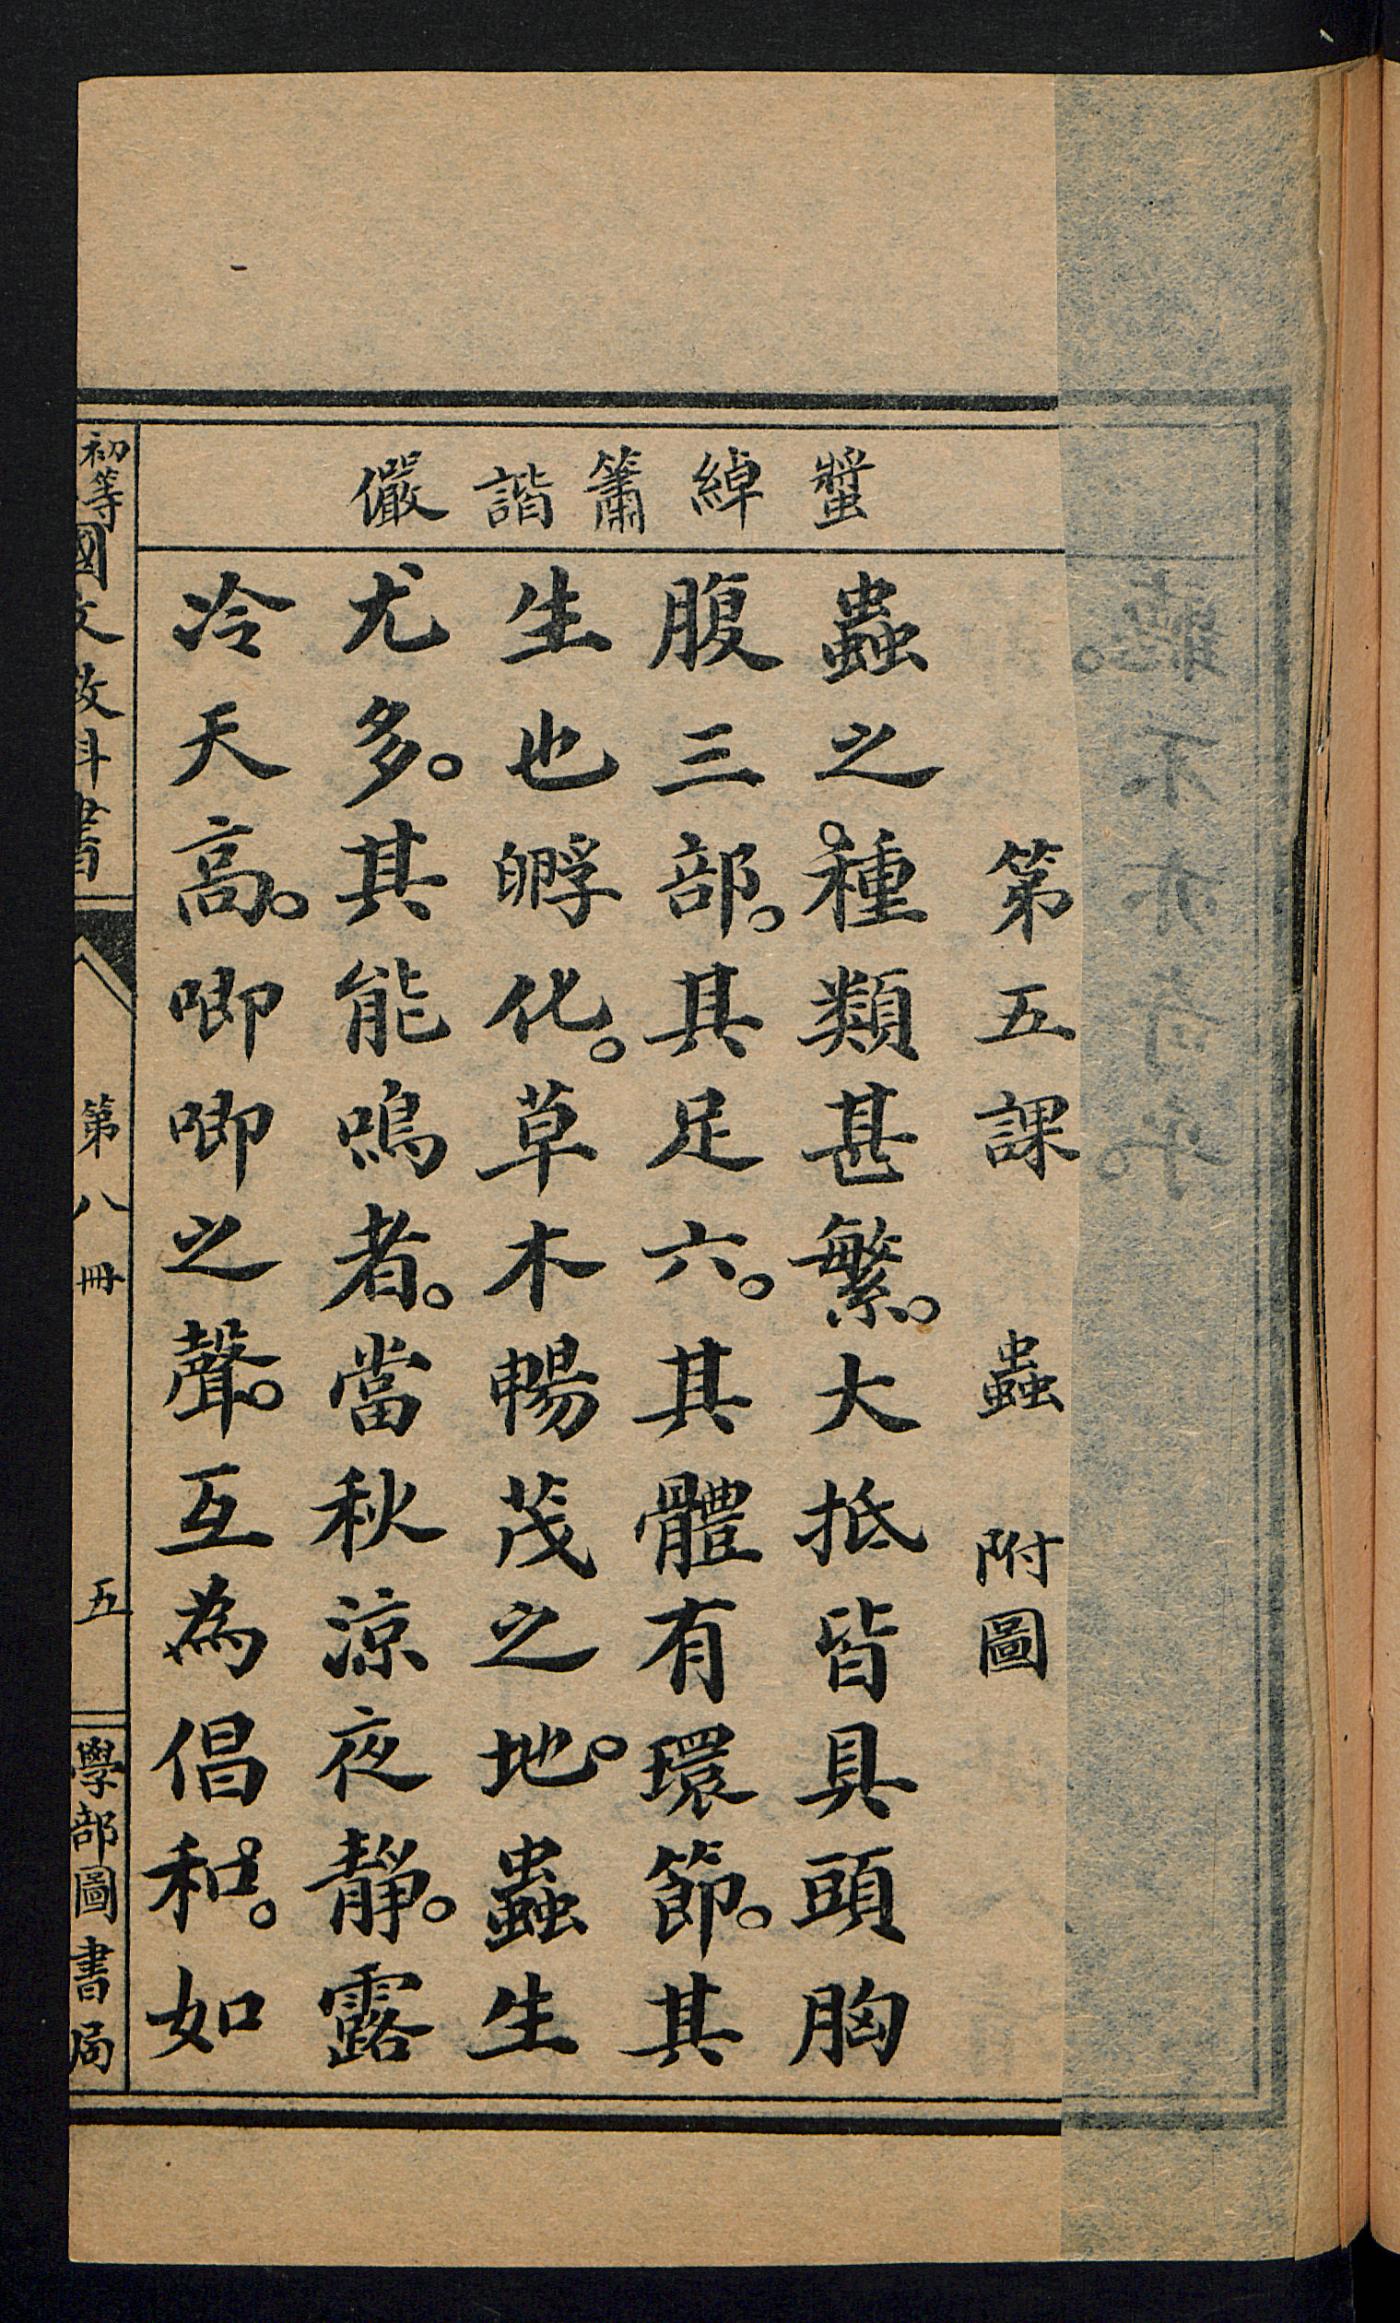 螿 綽 簫 諧 儼
第五課 蟲 附圖
蟲之種類甚繁。大抵皆具頭胸
腹三部。其足六。其體有環節。其
生也孵化。草木暢茂之地。蟲生
尤多。其能鳴者。當秋涼夜靜。露
冷天高。唧唧之聲。互為倡和。如
初等國文教科書
第八冊
五
學部圖書局